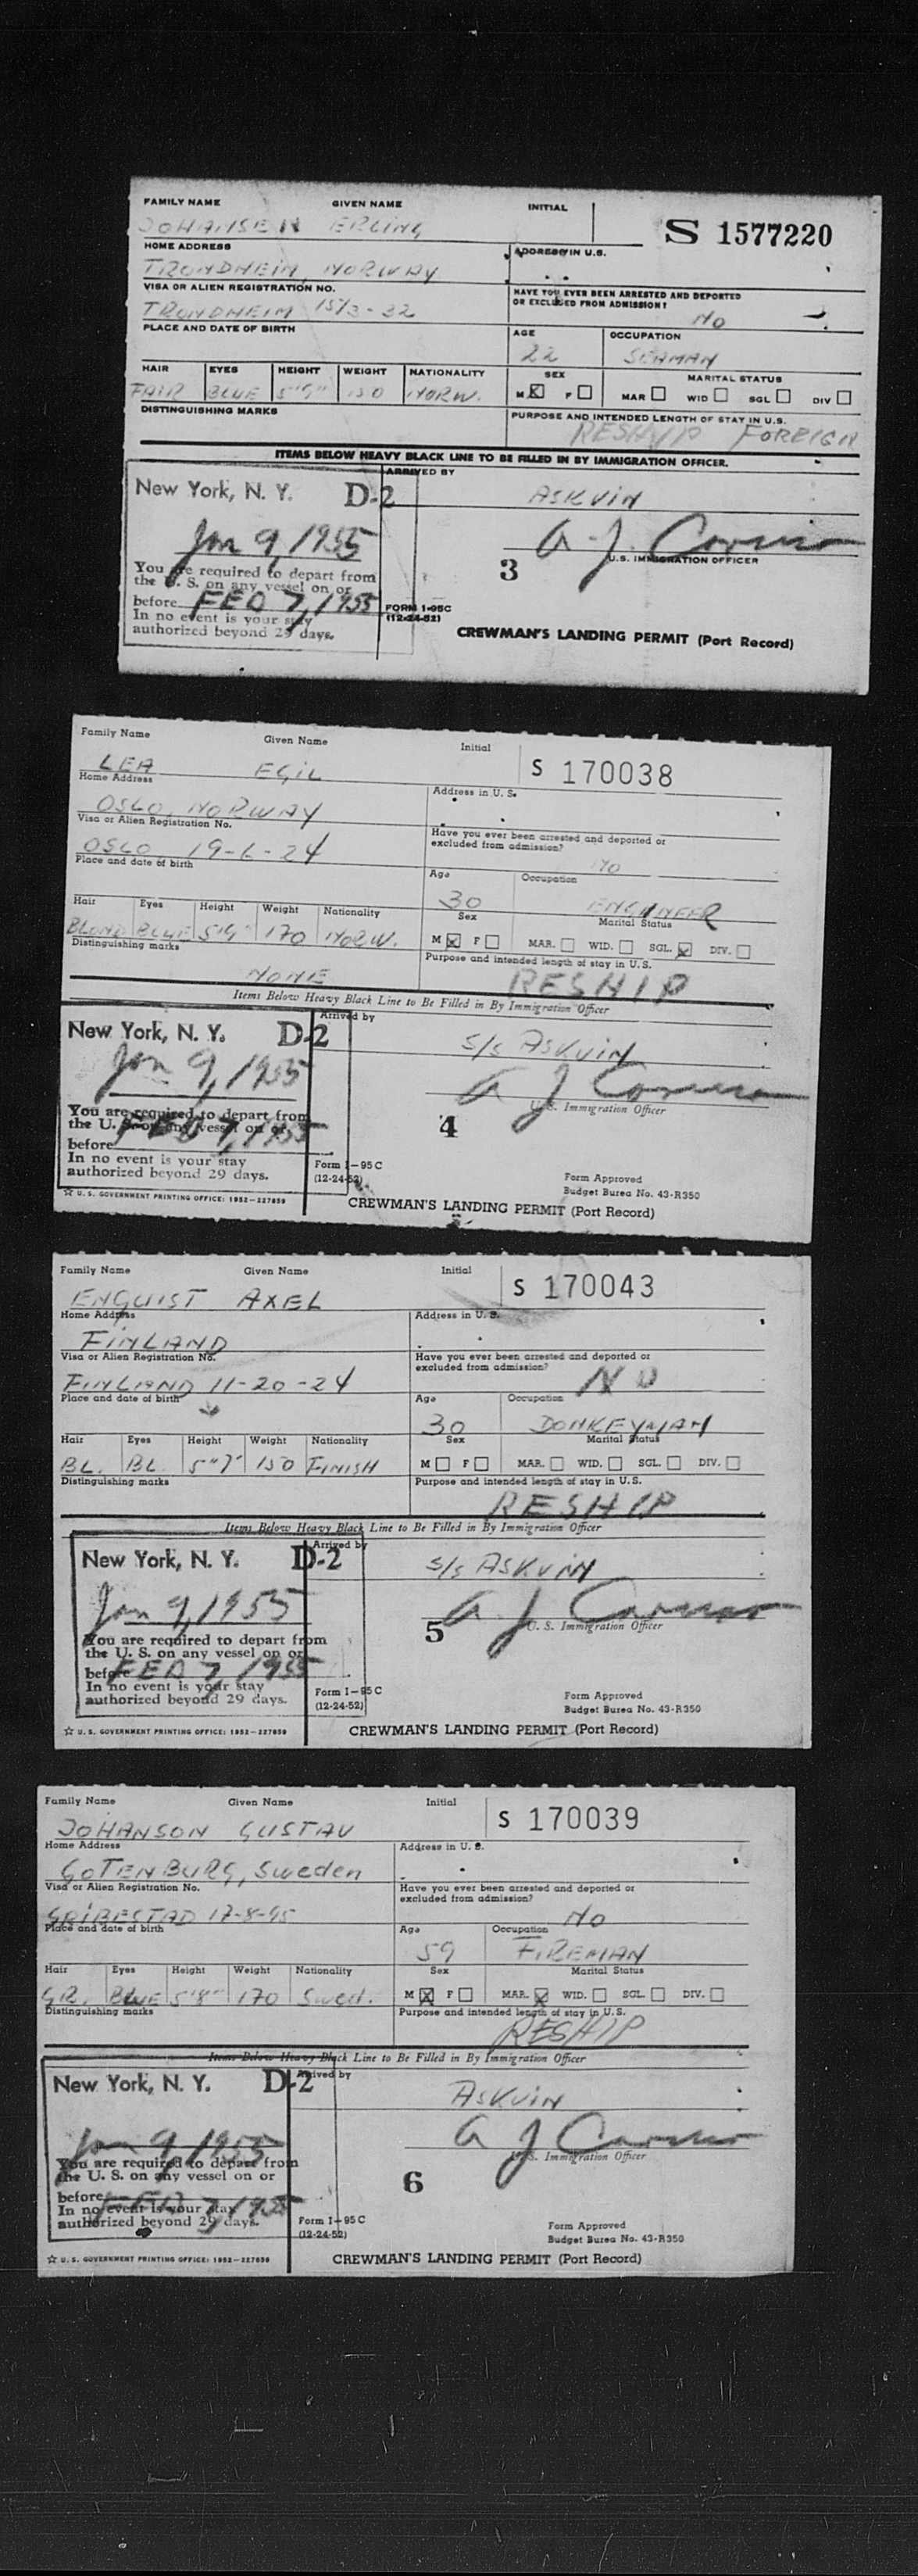 FAMILY NAME GIVEN NAME INITIAL
S 1577220
JOHANSEN ERLING
HOME ADDRESS ADDRESS IN U.S.
TRONDHEIM, NORWAY
VISA OR ALIEN REGISTRATION NO. HAVE YOU EVER BEEN ARRESTED AND DEPORTED
OR EXCLUDED FROM ADMISSION?
TRONDHEIM 15/3-32 NO
PLACE AND DATE OF BIRTH AGE OCCUPATION
22 SEAMAN
HAIR EYES HEIGHT WEIGHT NATIONALITY SEX MARITAL STATUS
FAIR BLUE 5"9" 150 NORW. M X F MAR WID SGL DIV
DISTINGUISHING MARKS PURPOSE AND INTENDED LENGTH OF STAY IN U.S.
RESHIP FOREIGN
ITEMS BELOW HEAVY BLACK LINE TO BE FILLED IN BY IMMIGRATION OFFICER.
ARRIVED BY
New York, N. Y. D-2 ASKVIN
Jan 9 1955 A. J.
U.S. IMMIGRATION OFFICER
You are required to depart from 3
the U. S. on any vessel on or
before FEB 7, 1955 FORM I-95C
In no event is your stay (12-24-52)
authorized beyond 29 days.
CREWMAN'S LANDING PERMIT (Port Record)
Family Name Given Name Initial
S 170038
LEA EGIL
Home Address Address in U. S.
OSLO, NORWAY
Visa or Alien Registration No. Have you ever been arrested and deported or
excluded from admission?
OSLO 19-6-24 NO
Place and date of birth Age Occupation
30 ENGINEER
Hair Eyes Height Weight Nationality Sex Marital Status
BLOND BLUE 170 NORW. M X F MAR. WID. SGL. X DIV.
Distinguishing marks Purpose and intended length of stay in U. S.
NONE RESHIP
Items Below Heavy Black Line to Be Filled in By Immigration Officer
Arrived by
New York, N. Y. D-2 S/S ASKVIN
Jan 9, 1955 A J
U. S. Immigration Officer
You are required to depart from 4
the U. S. on any vessel on or
before FEB 7, 1955
In no event is your stay
authorized beyond 29 days. Form I-95 C
(12-24-52)
Form Approved
Budget Burea No. 43-R350
☆ U. S. GOVERNMENT PRINTING OFFICE: 1952-227859
CREWMAN'S LANDING PERMIT (Port Record)
Family Name Given Name Initial
S 170043
ENQUIST AXEL
Home Address Address in U. S.
FINLAND
Visa or Alien Registration No. Have you ever been arrested and deported or
excluded from admission?
FINLAND 11-20-24 NO
Place and date of birth Age Occupation
30 DONKEYMAN
Hair Eyes Height Weight Nationality Sex Marital Status
BL. BL. 5"7" 150 FINISH M F MAR. WID. SGL. DIV.
Distinguishing marks Purpose and intended length of stay in U. S.
RESHIP
Items Below Heavy Black Line to Be Filled in By Immigration Officer
Arrived by
New York, N. Y. D-2 S/S ASKVIN
Jan 9, 1955 A J
U. S. Immigration Officer
You are required to depart from 5
the U. S. on any vessel on or
before FEB 7 1955
In no event is your stay
authorized beyond 29 days. Form I-95 C
(12-24-52)
Form Approved
Budget Burea No. 43-R350
☆ U. S. GOVERNMENT PRINTING OFFICE: 1952-227859
CREWMAN'S LANDING PERMIT (Port Record)
Family Name Given Name Initial
S 170039
JOHANSON GUSTAV
Home Address Address in U. S.
GOTENBURG, Sweden
Visa or Alien Registration No. Have you ever been arrested and deported or
excluded from admission?
GRIBESTAD 17-8-95 NO
Place and date of birth Age Occupation
59 FIREMAN
Hair Eyes Height Weight Nationality Sex Marital Status
GR. BLUE 5'8" 170 Swed. M X F MAR. X WID. SGL. DIV.
Distinguishing marks Purpose and intended length of stay in U. S.
RESHIP
Items Below Heavy Black Line to Be Filled in By Immigration Officer
Arrived by
New York, N. Y. D-2 ASKVIN
Jan 9, 1955 A J
U. S. Immigration Officer
You are required to depart from 6
the U. S. on any vessel on or
before FEB 7, 1955
In no event is your stay
authorized beyond 29 days. Form I-95 C
(12-24-52)
Form Approved
Budget Burea No. 43-R350
☆ U. S. GOVERNMENT PRINTING OFFICE: 1952-227859
CREWMAN'S LANDING PERMIT (Port Record)